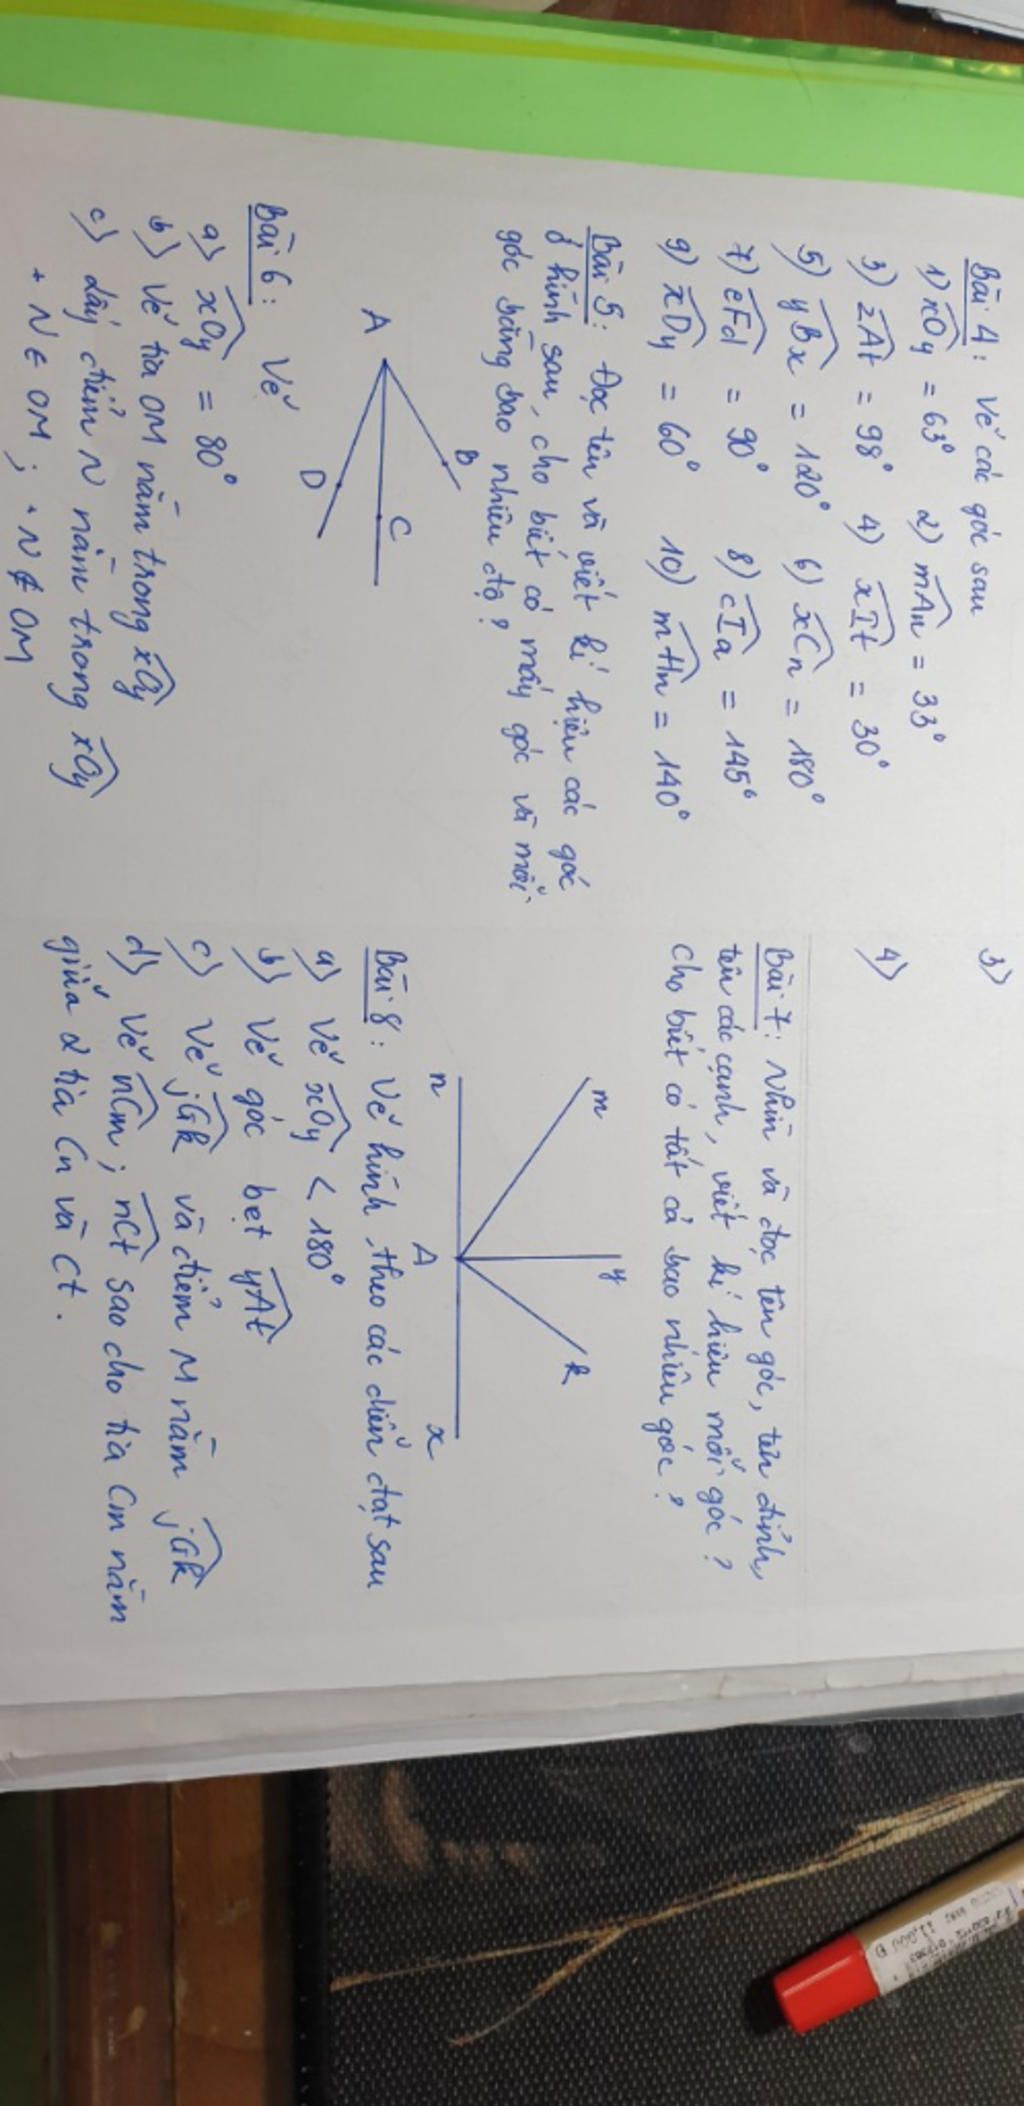 Bài 4: Vẽ các góc sau
1) xOy = 63° 2) mAn = 33°
3) zAt = 98° 4) xIt = 30°
5) yBx = 120° 6) xCn = 180°
7) eFd = 90° 8) cIa = 145°
9) xDy = 60° 10) mHn = 140°
Bài 5: Đọc tên và viết kí hiệu các góc
ở hình sau, cho biết có mấy góc và mỗi
góc bằng bao nhiêu độ?
B
A
C
D
Bài 6: Vẽ
a) xOy = 80°
b) Vẽ tia OM nằm trong xOy
c) Lấy điểm N nằm trong xOy
+ N ∈ OM ; + N ∉ OM
3)
4)
Bài 7: Nhìn và đọc tên góc, tên đỉnh,
tên các cạnh, viết kí hiệu mỗi góc?
cho biết có tất cả bao nhiêu góc?
m
y
k
n
A
x
Bài 8: Vẽ hình theo các diễn đạt sau
a) Vẽ xOy < 180°
b) Vẽ góc bẹt yAt
c) Vẽ jGk và điểm M nằm jGk
d) Vẽ nCm; nCt sao cho tia Cm nằm
giữa 2 tia Cn và Ct.